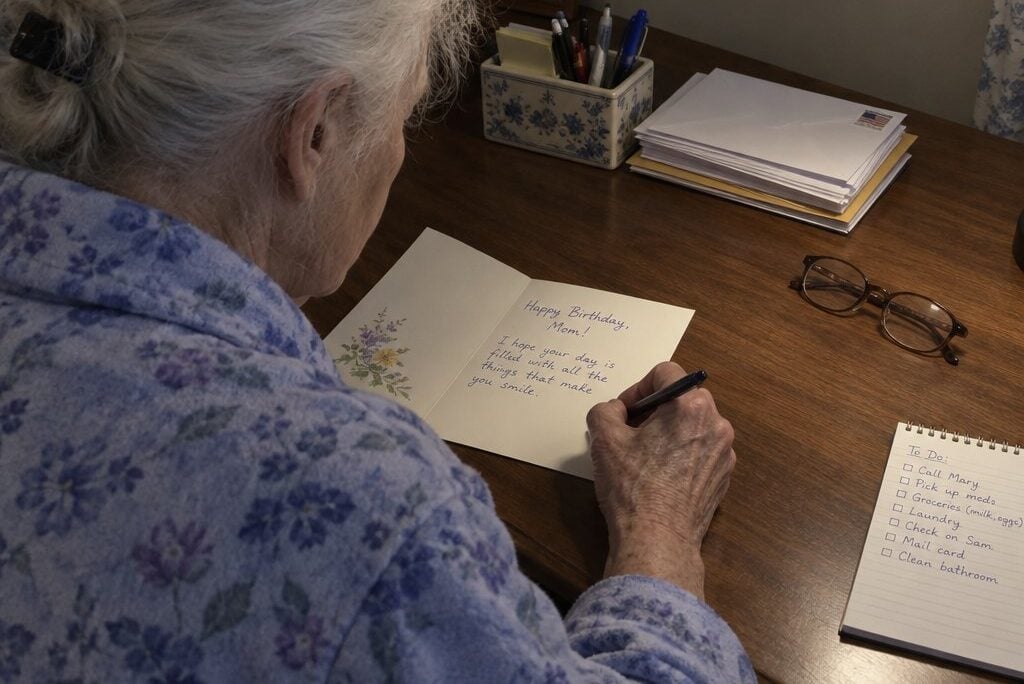 Happy Birthday,
Mom!
I hope your day is
filled with all the
things that make
you smile.
To Do:
Call Mary
Pick up meds
Groceries (milk, eggs)
Laundry
Check on Sam
Mail card
Clean bathroom